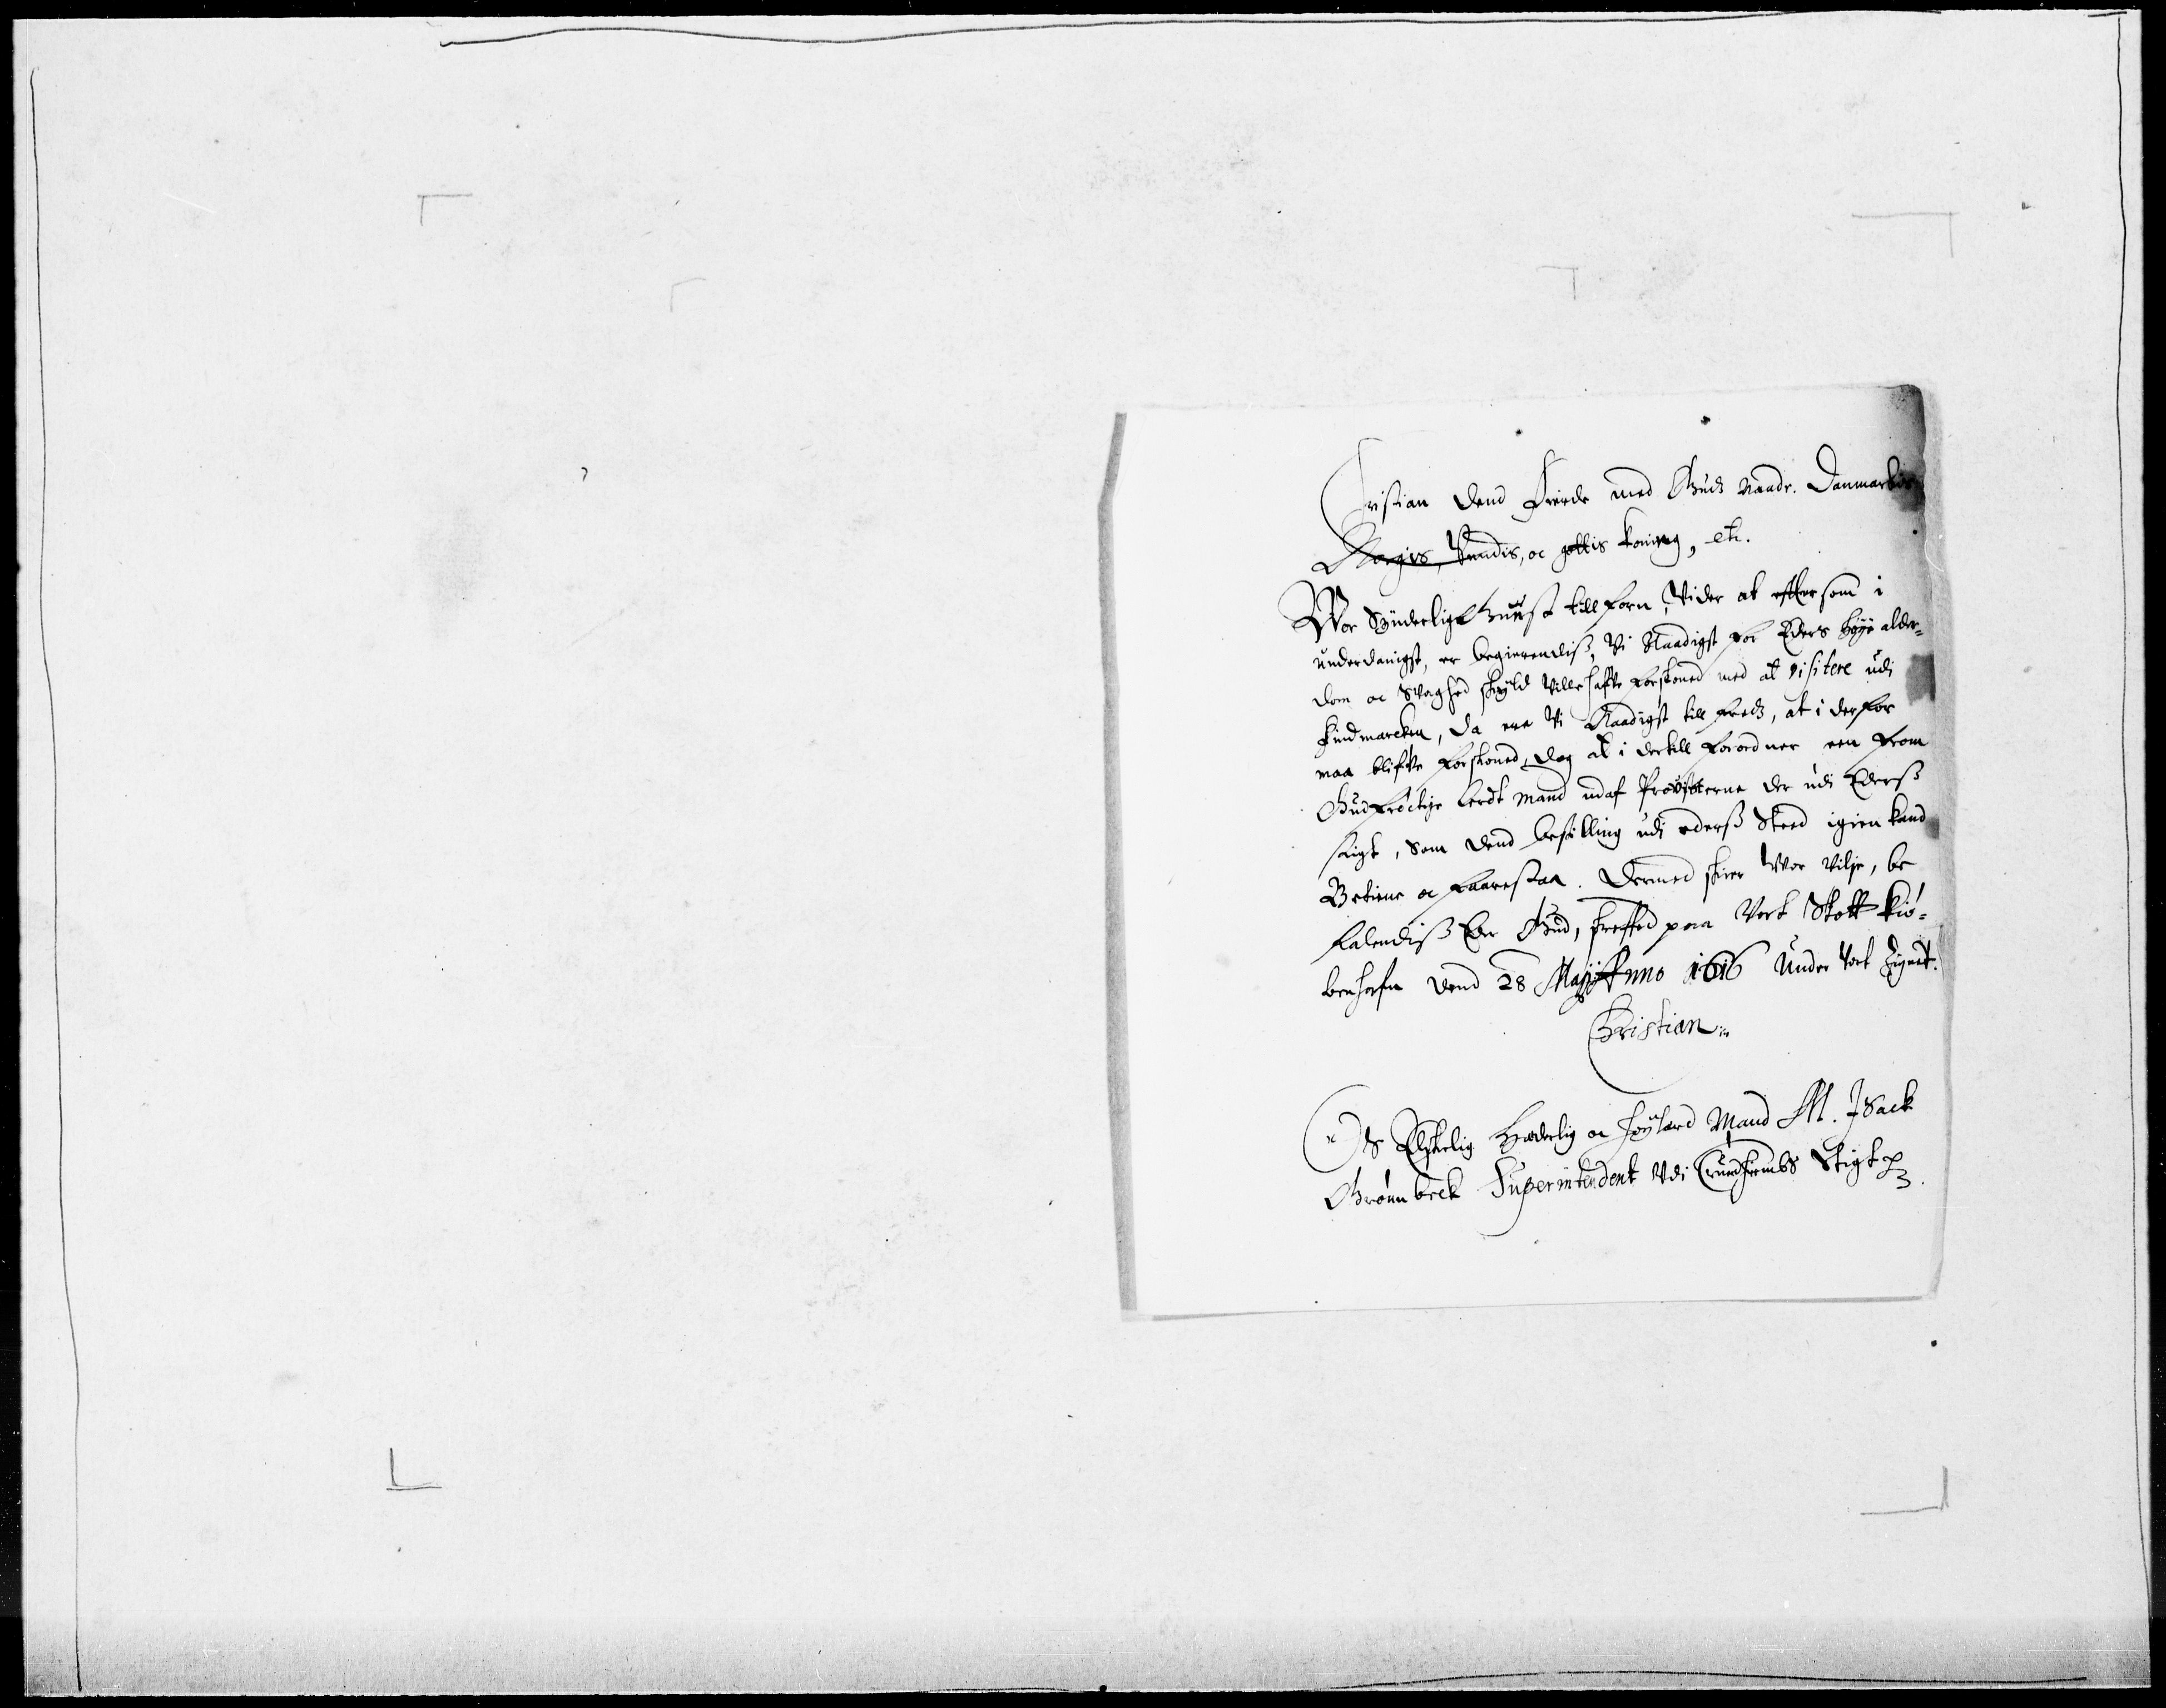 Cristian dend Fierde med Gudz Naade. Danmarkis
Norgis, Vendis, oc gottis koning, etc.
Wor Synderlige Gunst till forn, Vider at eftersom i
underdanigst, er begierendiß, Vi Naadigst for Eders høye alder¬
dom oc Svaghed skyld Ville haffve forskoned med at visitere udi
Findmarcken, da ere Vi Naadigst till fredz, at i derfor
maa bliffve forskoned, dog at i dertill forordner een from
Gudfröctige lerdt mand udaf Provisterne der udi Ederß
stigt, som dend bestilling udi ederß Sted igien kand
Betiene oc faarestaa. Dermed skeer Wor Vilje, be
falendiß Eder Gud, skreffved paa Vort Slott kiø¬
benhafn dend 28 Maij Anno 1616 Under Vort Zignet.
Christian
Os Elskelig Hæderlig oc høylærd Mand M. Isack
Grönnbeck Superintendent Udi Trundhiembs Stigt